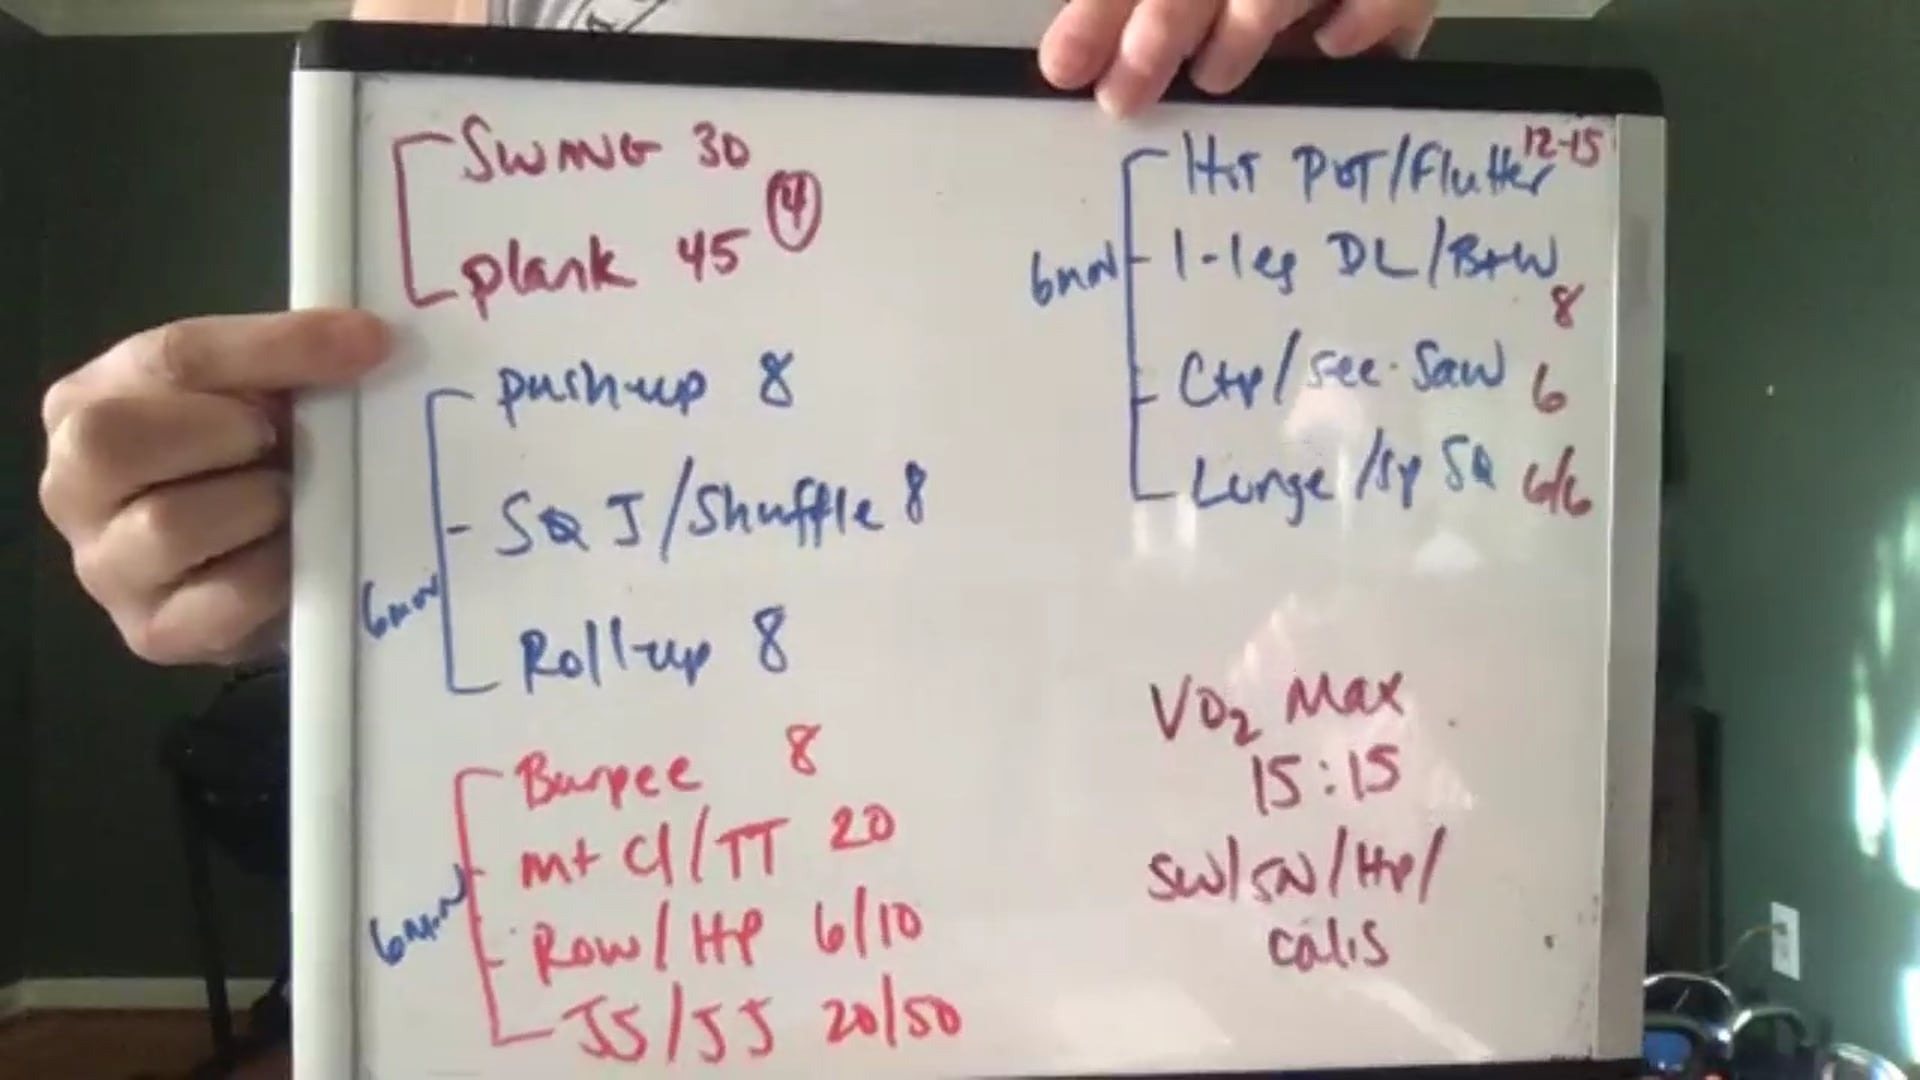 SWING 30
④
plank 45
push-up 8
SQ J/Shuffle 8
6min
Roll-up 8
Burpee 8
mt Cl/TT 20
6min
Row/HP 6/10
JJ 20/50
12-15
Hot Pot/Flutter
1-leg DL/B+W
6min
8
/see-Saw 6
Lunge/Sp SQ 6/6
VO2 Max
15:15
SW/SN/HP/
Calis